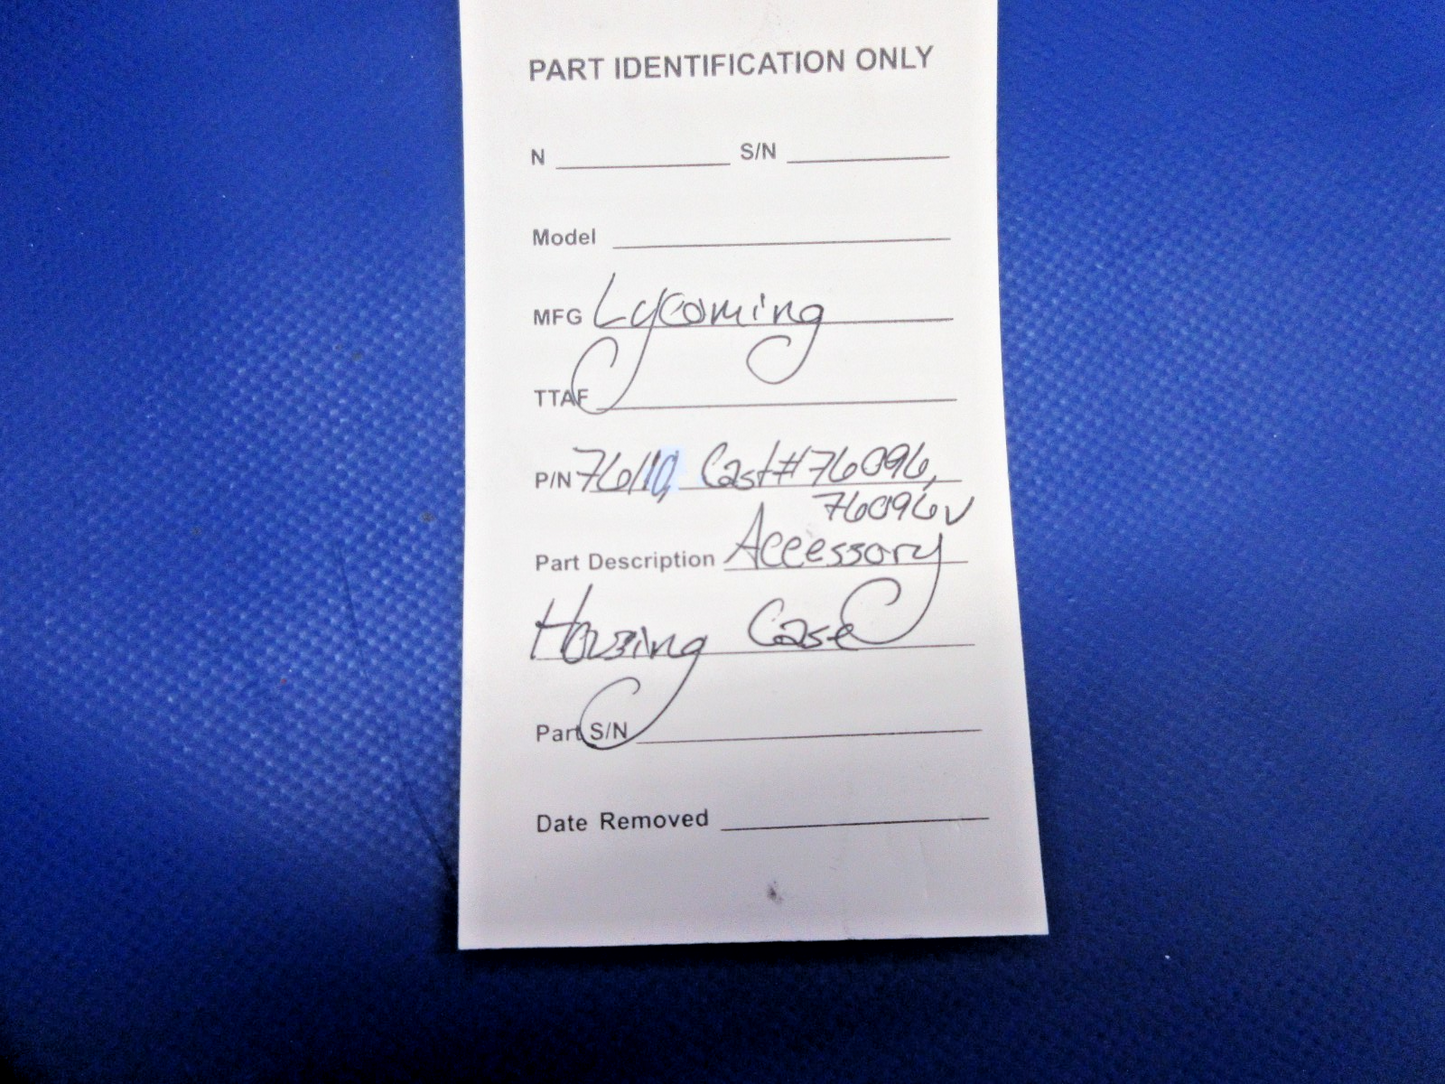 PART IDENTIFICATION ONLY
N S/N
Model
MFG Lycoming
TTAF
P/N 76110, Cast#76096,
76096V
Part Description Accessory
Housing Case
Part S/N
Date Removed